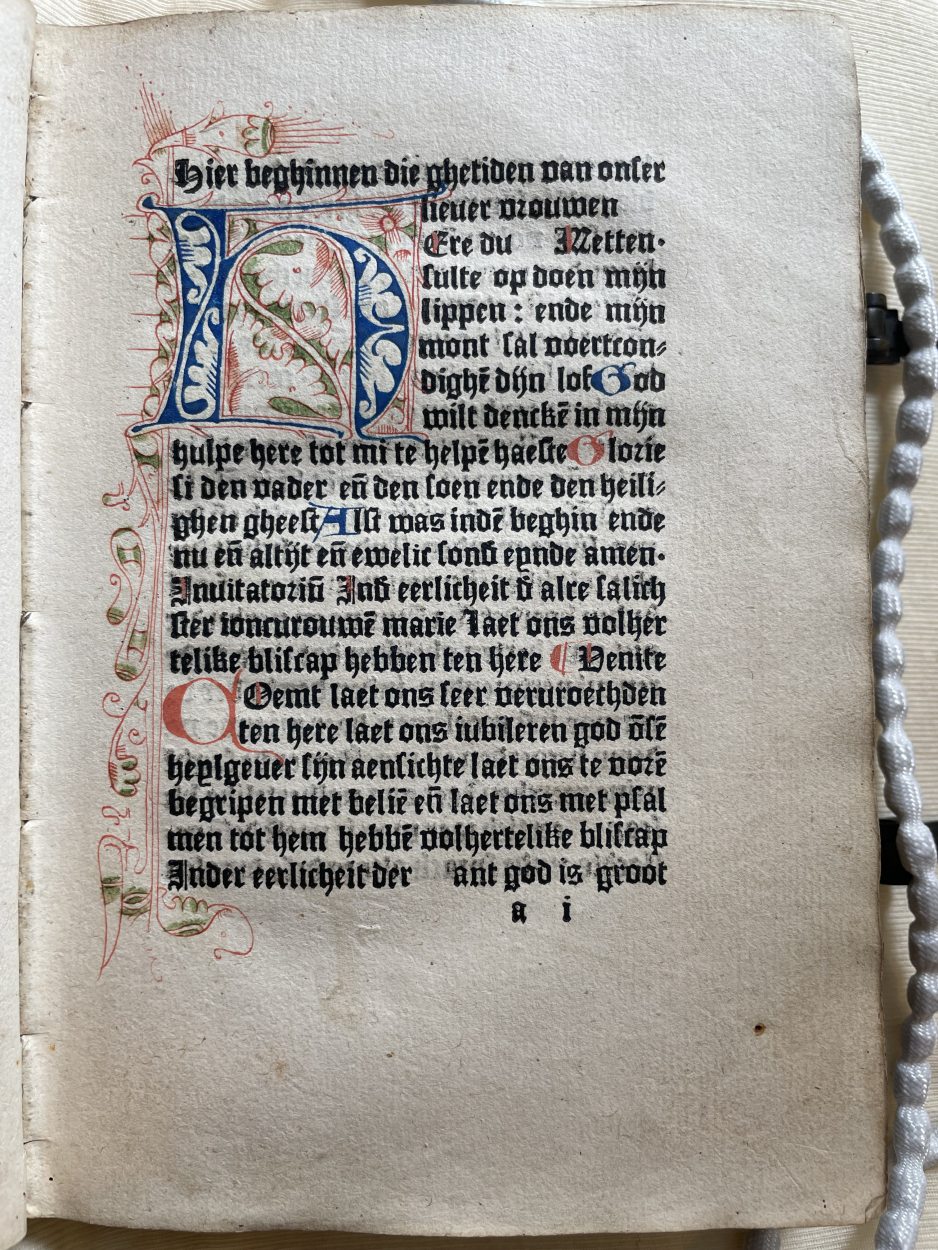 Hier beghinnen die ghetiden van onser
lieuer vrouwen
HEre du Metten·
sulte op doen mijn
lippen : ende mijn
mont sal voertcon⸗
dighē dijn lof God
wilt denckē in mijn
hulpe here tot mi te helpē haeste Glorie
si den vader en̄ den soen ende den heili⸗
ghen gheest Alst was indē beghin ende
nu en̄ altijt en̄ ewelic sond̕ eynde amen·
Inuitatoriū Ind̕ eerlicheit d̕ alre salich
ster ioncurouwē marie Laet ons volher
telike bliscap hebben ten here Venite
COemt laet ons seer veruroechden
ten here laet ons iubileren god ōsē
heylgeuer sijn aensichte laet ons te vorē
begripen met beliē en̄ laet ons met psal
men tot hem hebbē volhertelike bliscap
Inder eerlicheit der ant god is groot
a i